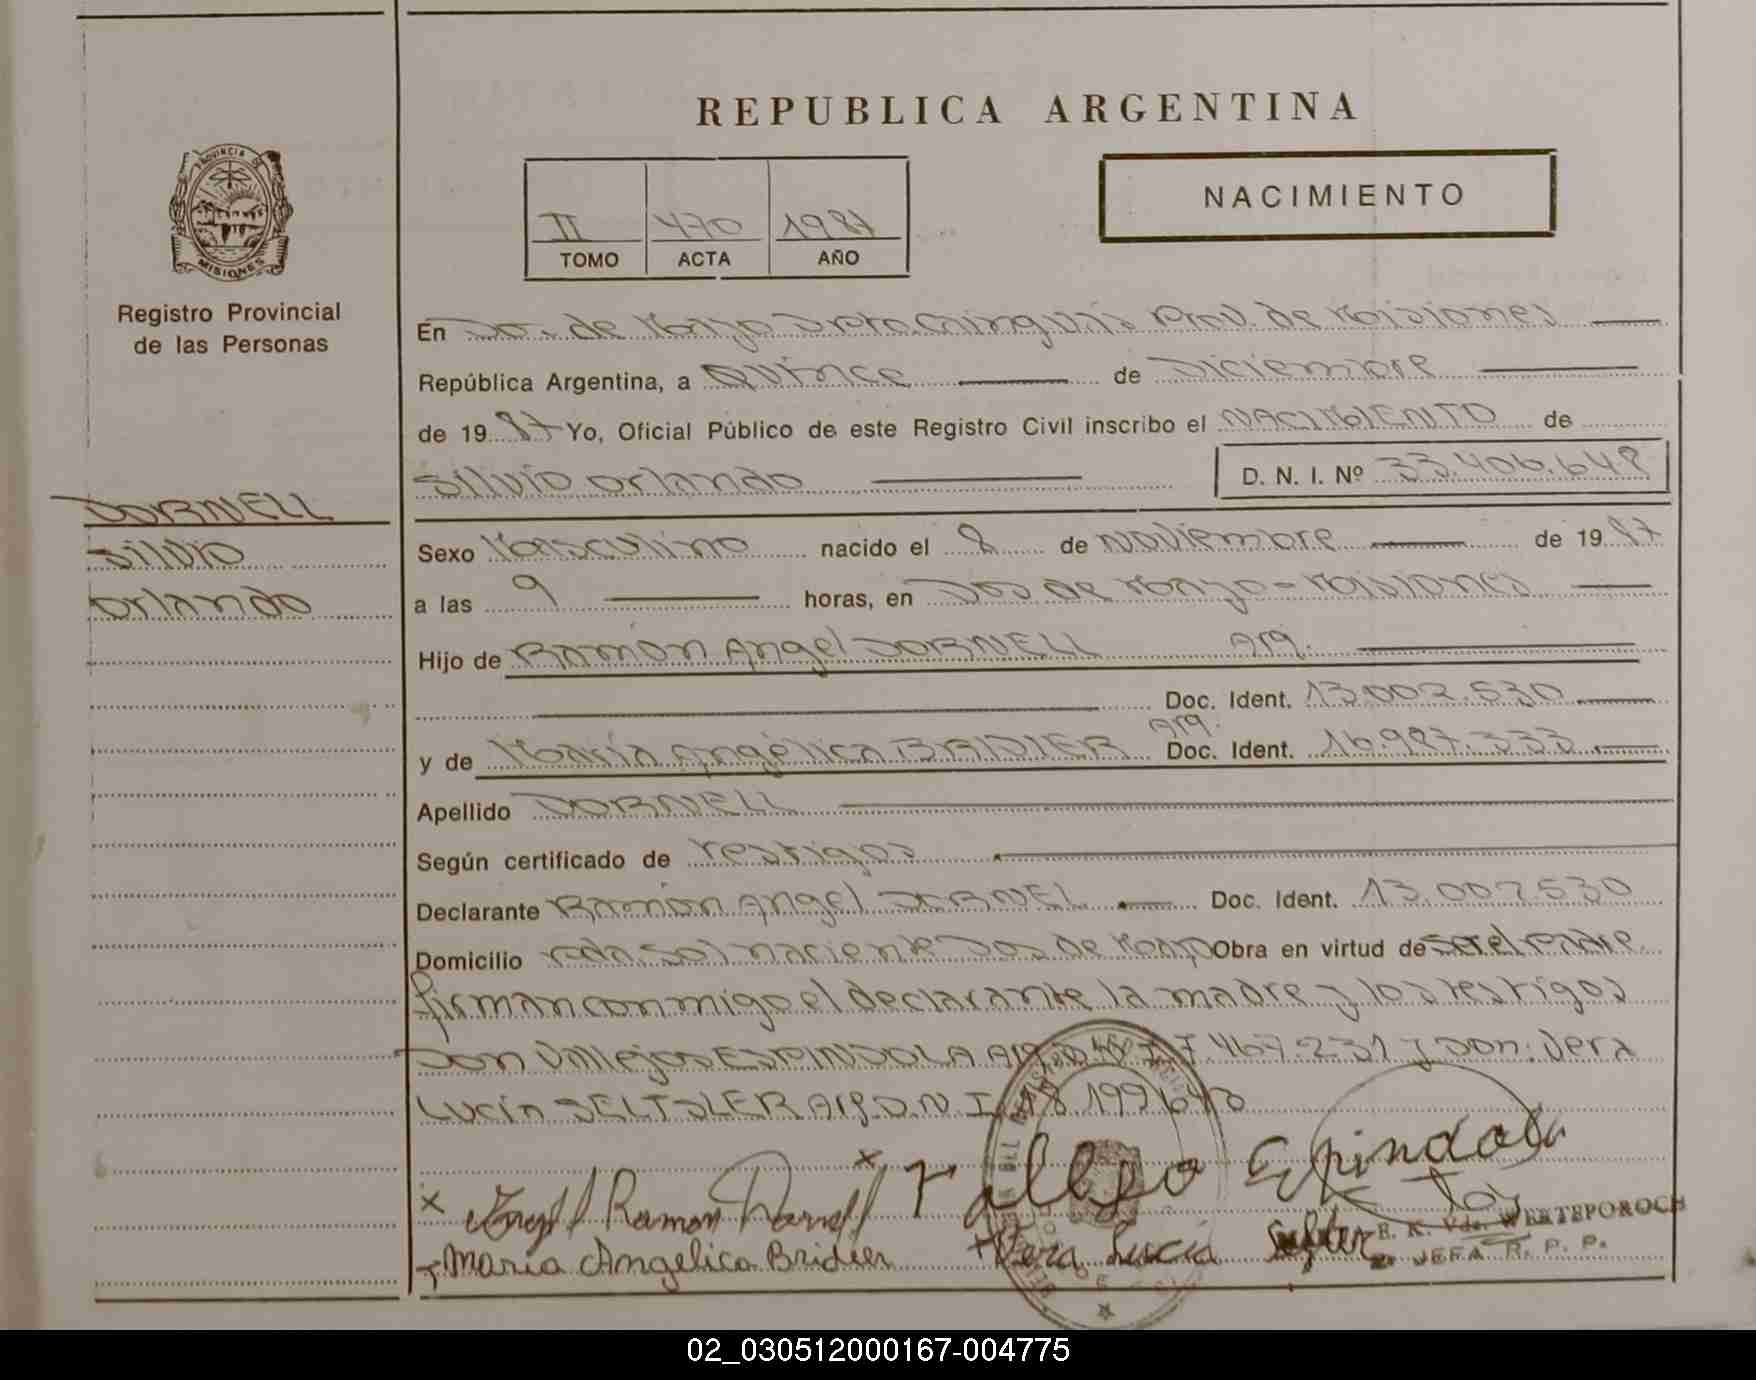 REPUBLICA ARGENTINA
PROVINCIA DE
MISIONES
Registro Provincial
de las Personas
NACIMIENTO
II 470 1987
TOMO ACTA AÑO
En Dos de Mayo Dpto. Cainguás Prov. de Misiones
República Argentina, a Quince de Diciembre
de 1987 Yo, Oficial Público de este Registro Civil inscribo el NACIMIENTO de
Silvio Orlando D. N. I. Nº 33.406.648
DORNELL
Silvio
Orlando
Sexo Masculino nacido el 8 de Noviembre de 1987
a las 9 horas, en Dos de Mayo - Misiones
Hijo de Ramón Angel DORNELL Arg.
Doc. Ident. 13.002.530
y de María Angélica BRIDIER Arg. Doc. Ident. 16.987.333
Apellido DORNELL
Según certificado de testigos
Declarante Ramón Angel DORNEL Doc. Ident. 13.002.530
Domicilio Sol naciente Dos de Mayo Obra en virtud de ser el padre
firman conmigo el declarante la madre y los testigos
Don Villejos ESPINDOLA Arg. D.N.I 7.467.231 y Don: Vera
Lucía SELTSLER Arg. D.N.I. 18.199.643
x Angel Ramon Dornell x Vallejo Espindola
x Maria Angelica Bridier x Vera Lucia Seltler
E. K. Vda. WERTEPOROCH
JEFA R. P. P.
02_030512000167-004775